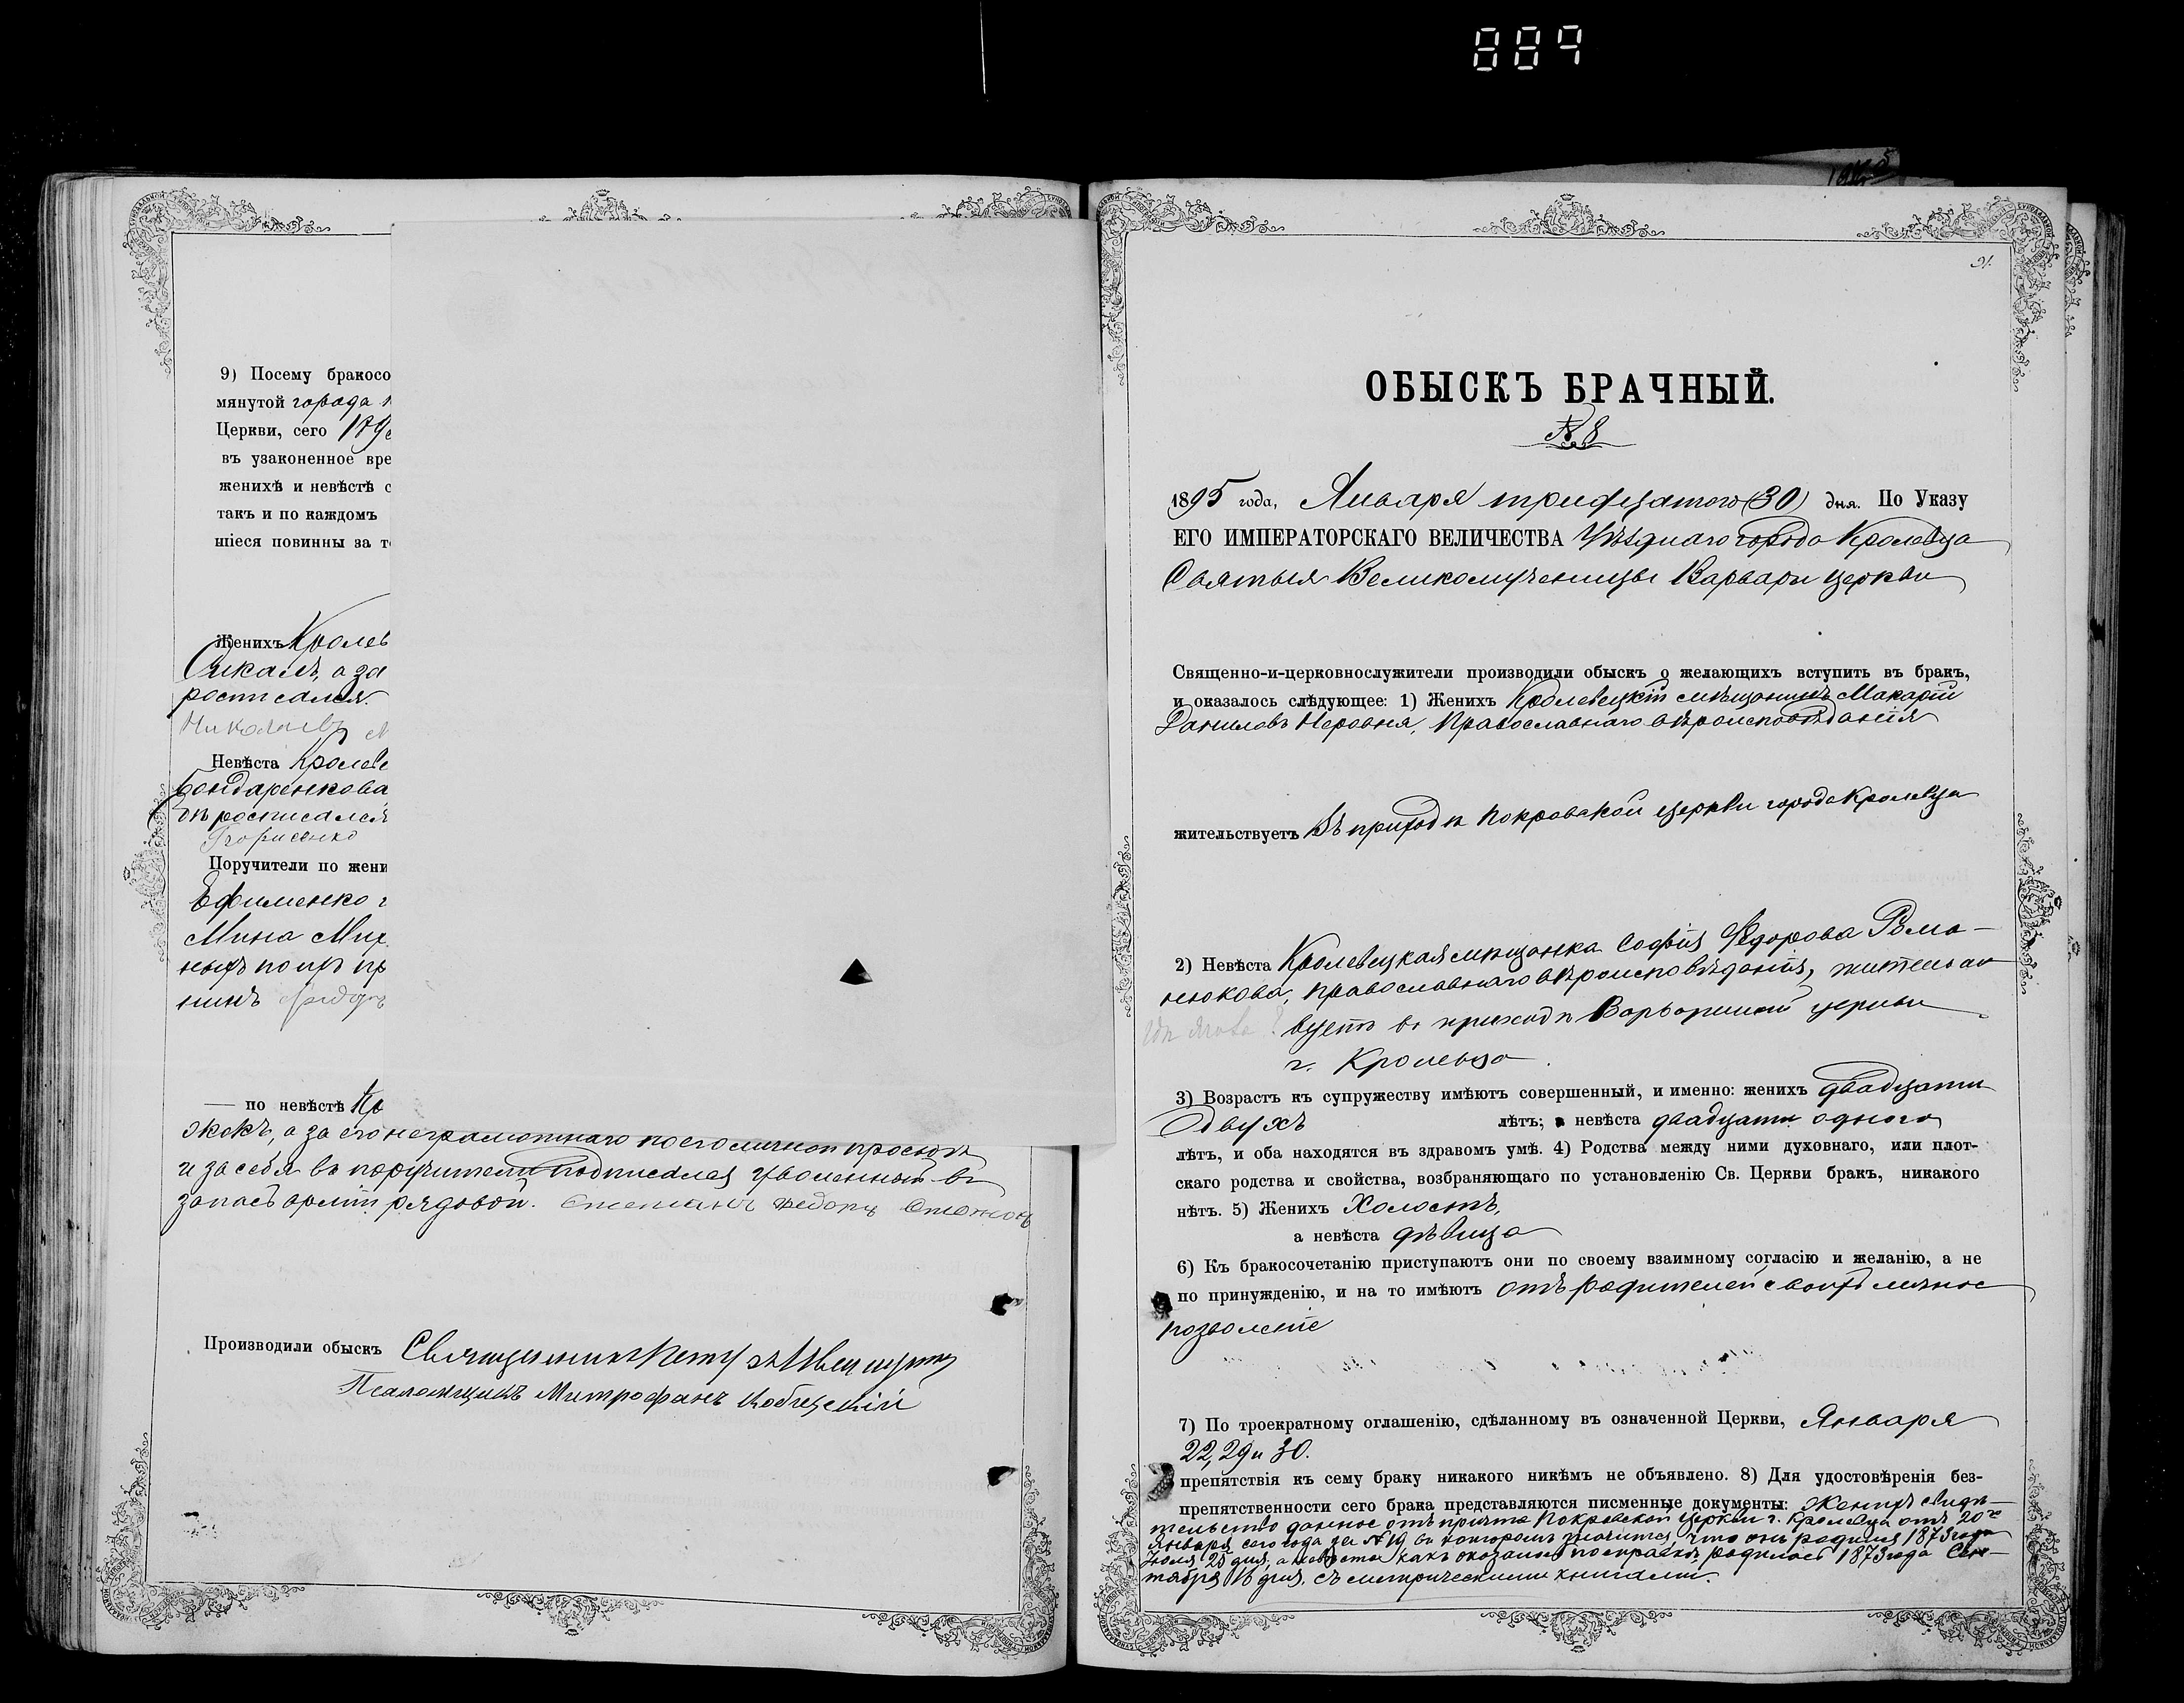 889
9) Посему бракосо
мянутой города
Церкви, сего 189
въ узаконенное вре
женихѣ и невѣстѣ с
такъ и по каждомъ
шіеся повинны за т
Женихъ Кролев
Сикалъ, а за
росписался.
Николаевъ
Невѣста Кролеве
Бондаренкова
росписался
Поручители по жени
Ефименко
Мина Мих
ныхъ по
нинъ
— по невѣстѣ Кр
а за его неграмотнаго по его личной просьбѣ
и за себя въ поручители подписался уволенный въ
запасъ арміи рядовой.
Производили обыскъ Священникъ Петръ
Псаломщикъ Митрофанъ
91.
ОБЫСКЪ БРАЧНЫЙ.
№ 8
1895 года, Января тридцатого (30) дня. По Указу
ЕГО ИМПЕРАТОРСКАГО ВЕЛИЧЕСТВА Уѣзднаго города Кролевца
Святыя Великомученицы Варвары церкви
Священно-и-церковнослужители производили обыскъ о желающихъ вступить въ бракъ,
и оказалось слѣдующее: 1) Женихъ Кролевецкій мѣщанинъ Макарій
Даниловъ Неровня, Православнаго вѣроисповѣданія
жительствуетъ Въ приходѣ Покровской церкви города Кролевца
2) Невѣста Кролевецкая мѣщанка Софія Федорова Рома-
нюкова, православнаго вѣроисповѣданія, жительст
вуетъ въ приходѣ Варваринской церкви
г. Кролевца
3) Возрастъ къ супружеству имѣютъ совершенный, и именно: женихъ двадцати
двухъ лѣтъ; а невѣста двадцати одного
лѣтъ, и оба находятся въ здравомъ умѣ. 4) Родства между ними духовнаго, или плот-
скаго родства и свойства, возбраняющаго по установленію Св. Церкви бракъ, никакого
нѣтъ. 5) Женихъ Холостъ,
а невѣста дѣвица
6) Къ бракосочетанію приступаютъ они по своему взаимному согласію и желанію, а не
по принужденію, и на то имѣютъ отъ родителей своихъ личное
позволеніе
7) По троекратному оглашенію, сдѣланному въ означенной Церкви, Января
22, 29 и 30.
препятствія къ сему браку никакого никѣмъ не объявлено. 8) Для удостовѣренія без-
препятственности сего брака представляются писменные документы: Женихъ свидѣ-
тельство данное отъ причта Покровской церкви г. Кролевца отъ 20го
Января сего года за № 19 въ которомъ значится, что онъ родился 1873 года
Іюля 25 дня, а невѣста какъ оказалось по справкѣ родилась 1873 года Сен-
тября 16 дня, съ метрическими книгами.